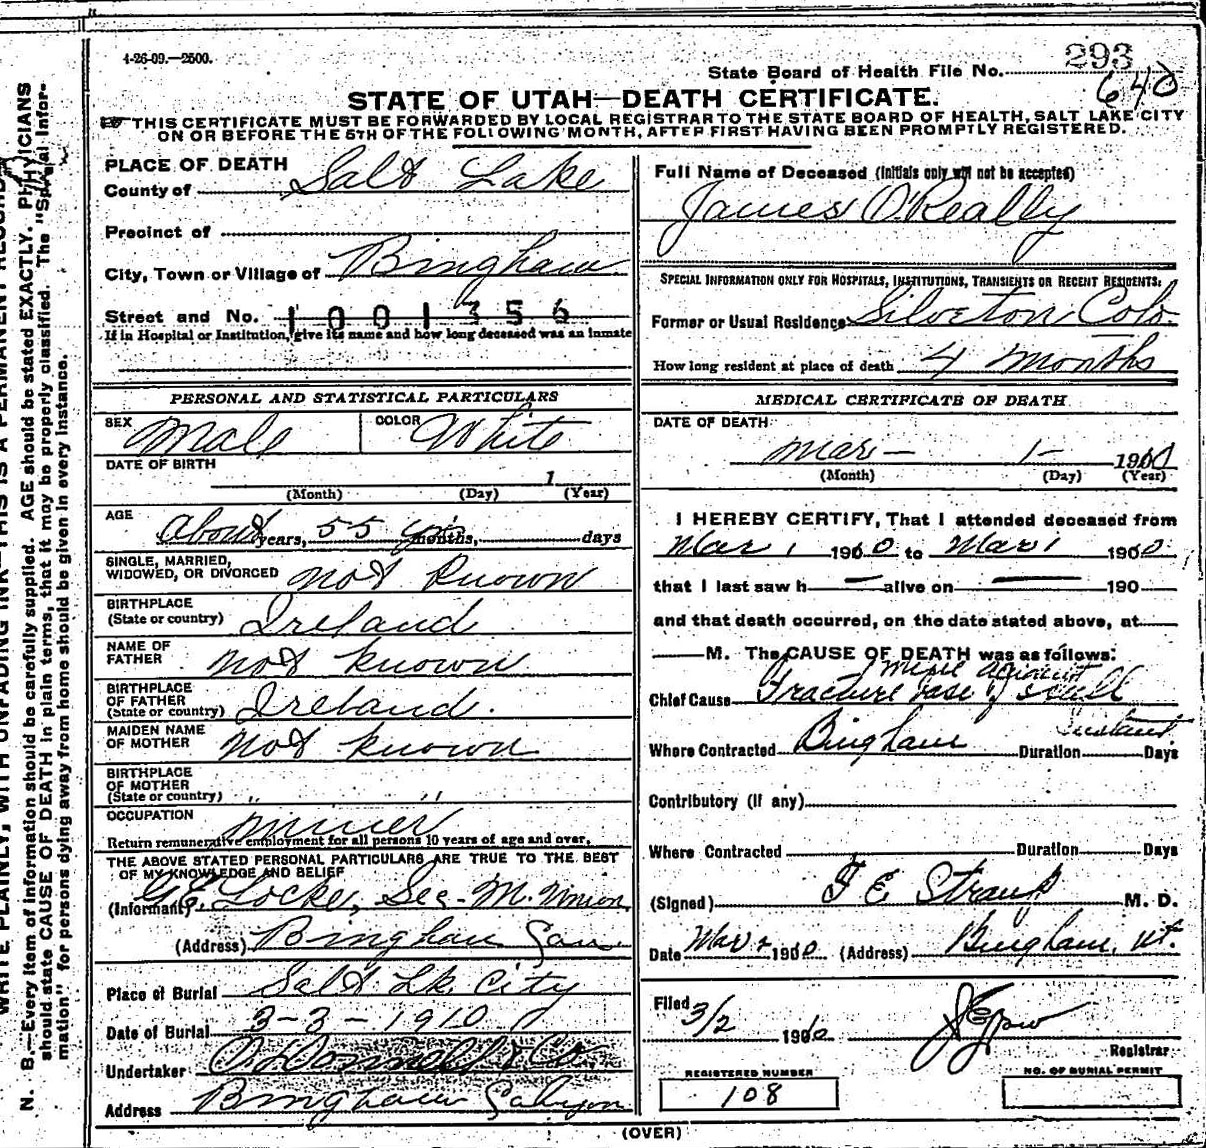 4-26-09.—2500.
293
State Board of Health File No.
640
STATE OF UTAH—DEATH CERTIFICATE.
THIS CERTIFICATE MUST BE FORWARDED BY LOCAL REGISTRAR TO THE STATE BOARD OF HEALTH, SALT LAKE CITY
ON OR BEFORE THE 5TH OF THE FOLLOWING MONTH, AFTER FIRST HAVING BEEN PROMPTLY REGISTERED.
PLACE OF DEATH
County of Salt Lake
Precinct of
City, Town or Village of Bingham
Street and No. 1001356
If in Hospital or Institution, give its name and how long deceased was an inmate
PERSONAL AND STATISTICAL PARTICULARS
SEX Male COLOR White
DATE OF BIRTH
1
(Month) (Day) (Year)
AGE
About years, 55 yrs months, days
SINGLE, MARRIED,
WIDOWED, OR DIVORCED not known
BIRTHPLACE
(State or country) Ireland
NAME OF
FATHER not known
BIRTHPLACE
OF FATHER
(State or country) Ireland.
MAIDEN NAME
OF MOTHER not known
BIRTHPLACE
OF MOTHER
(State or country) " "
OCCUPATION miner
Return remunerative employment for all persons 10 years of age and over.
THE ABOVE STATED PERSONAL PARTICULARS ARE TRUE TO THE BEST
OF MY KNOWLEDGE AND BELIEF
(Informant) Locke, Sec - M. Union
(Address) Bingham Can
Place of Burial Salt Lk. City
Date of Burial 3-3-1910
Undertaker O'Donnell & Co
Address Bingham Canyon
Full Name of Deceased (Initials only will not be accepted)
James O.Really
SPECIAL INFORMATION ONLY FOR HOSPITALS, INSTITUTIONS, TRANSIENTS OR RECENT RESIDENTS:
Former or Usual Residence Silveton Colo.
How long resident at place of death 4 months
MEDICAL CERTIFICATE OF DEATH
DATE OF DEATH
Mar - 1 - 1910
(Month) (Day) (Year)
I HEREBY CERTIFY, That I attended deceased from
Mar 1 1910 to Mar 1 1910
that I last saw h — alive on — 190
and that death occurred, on the date stated above, at
M. The CAUSE OF DEATH was as follows:
mine accident
Chief Cause Fracture base of skull
instant
Where Contracted Bingham Duration Days
Contributory (if any)
Where Contracted Duration Days
(Signed) F E Straup M. D.
Date Mar 2 1910 (Address) Bingham, Ut.
Filed 3/2 1910
Registrar
REGISTERED NUMBER
108
NO. OF BURIAL PERMIT
(OVER)
WRITE PLAINLY, WITH UNFADING INK—THIS IS A PERMANENT RECORD
N. B.—Every item of information should be carefully supplied. AGE should be stated EXACTLY. PHYSICIANS
should state CAUSE OF DEATH in plain terms, that it may be properly classified. The "Special Infor-
mation" for persons dying away from home should be given in every instance.